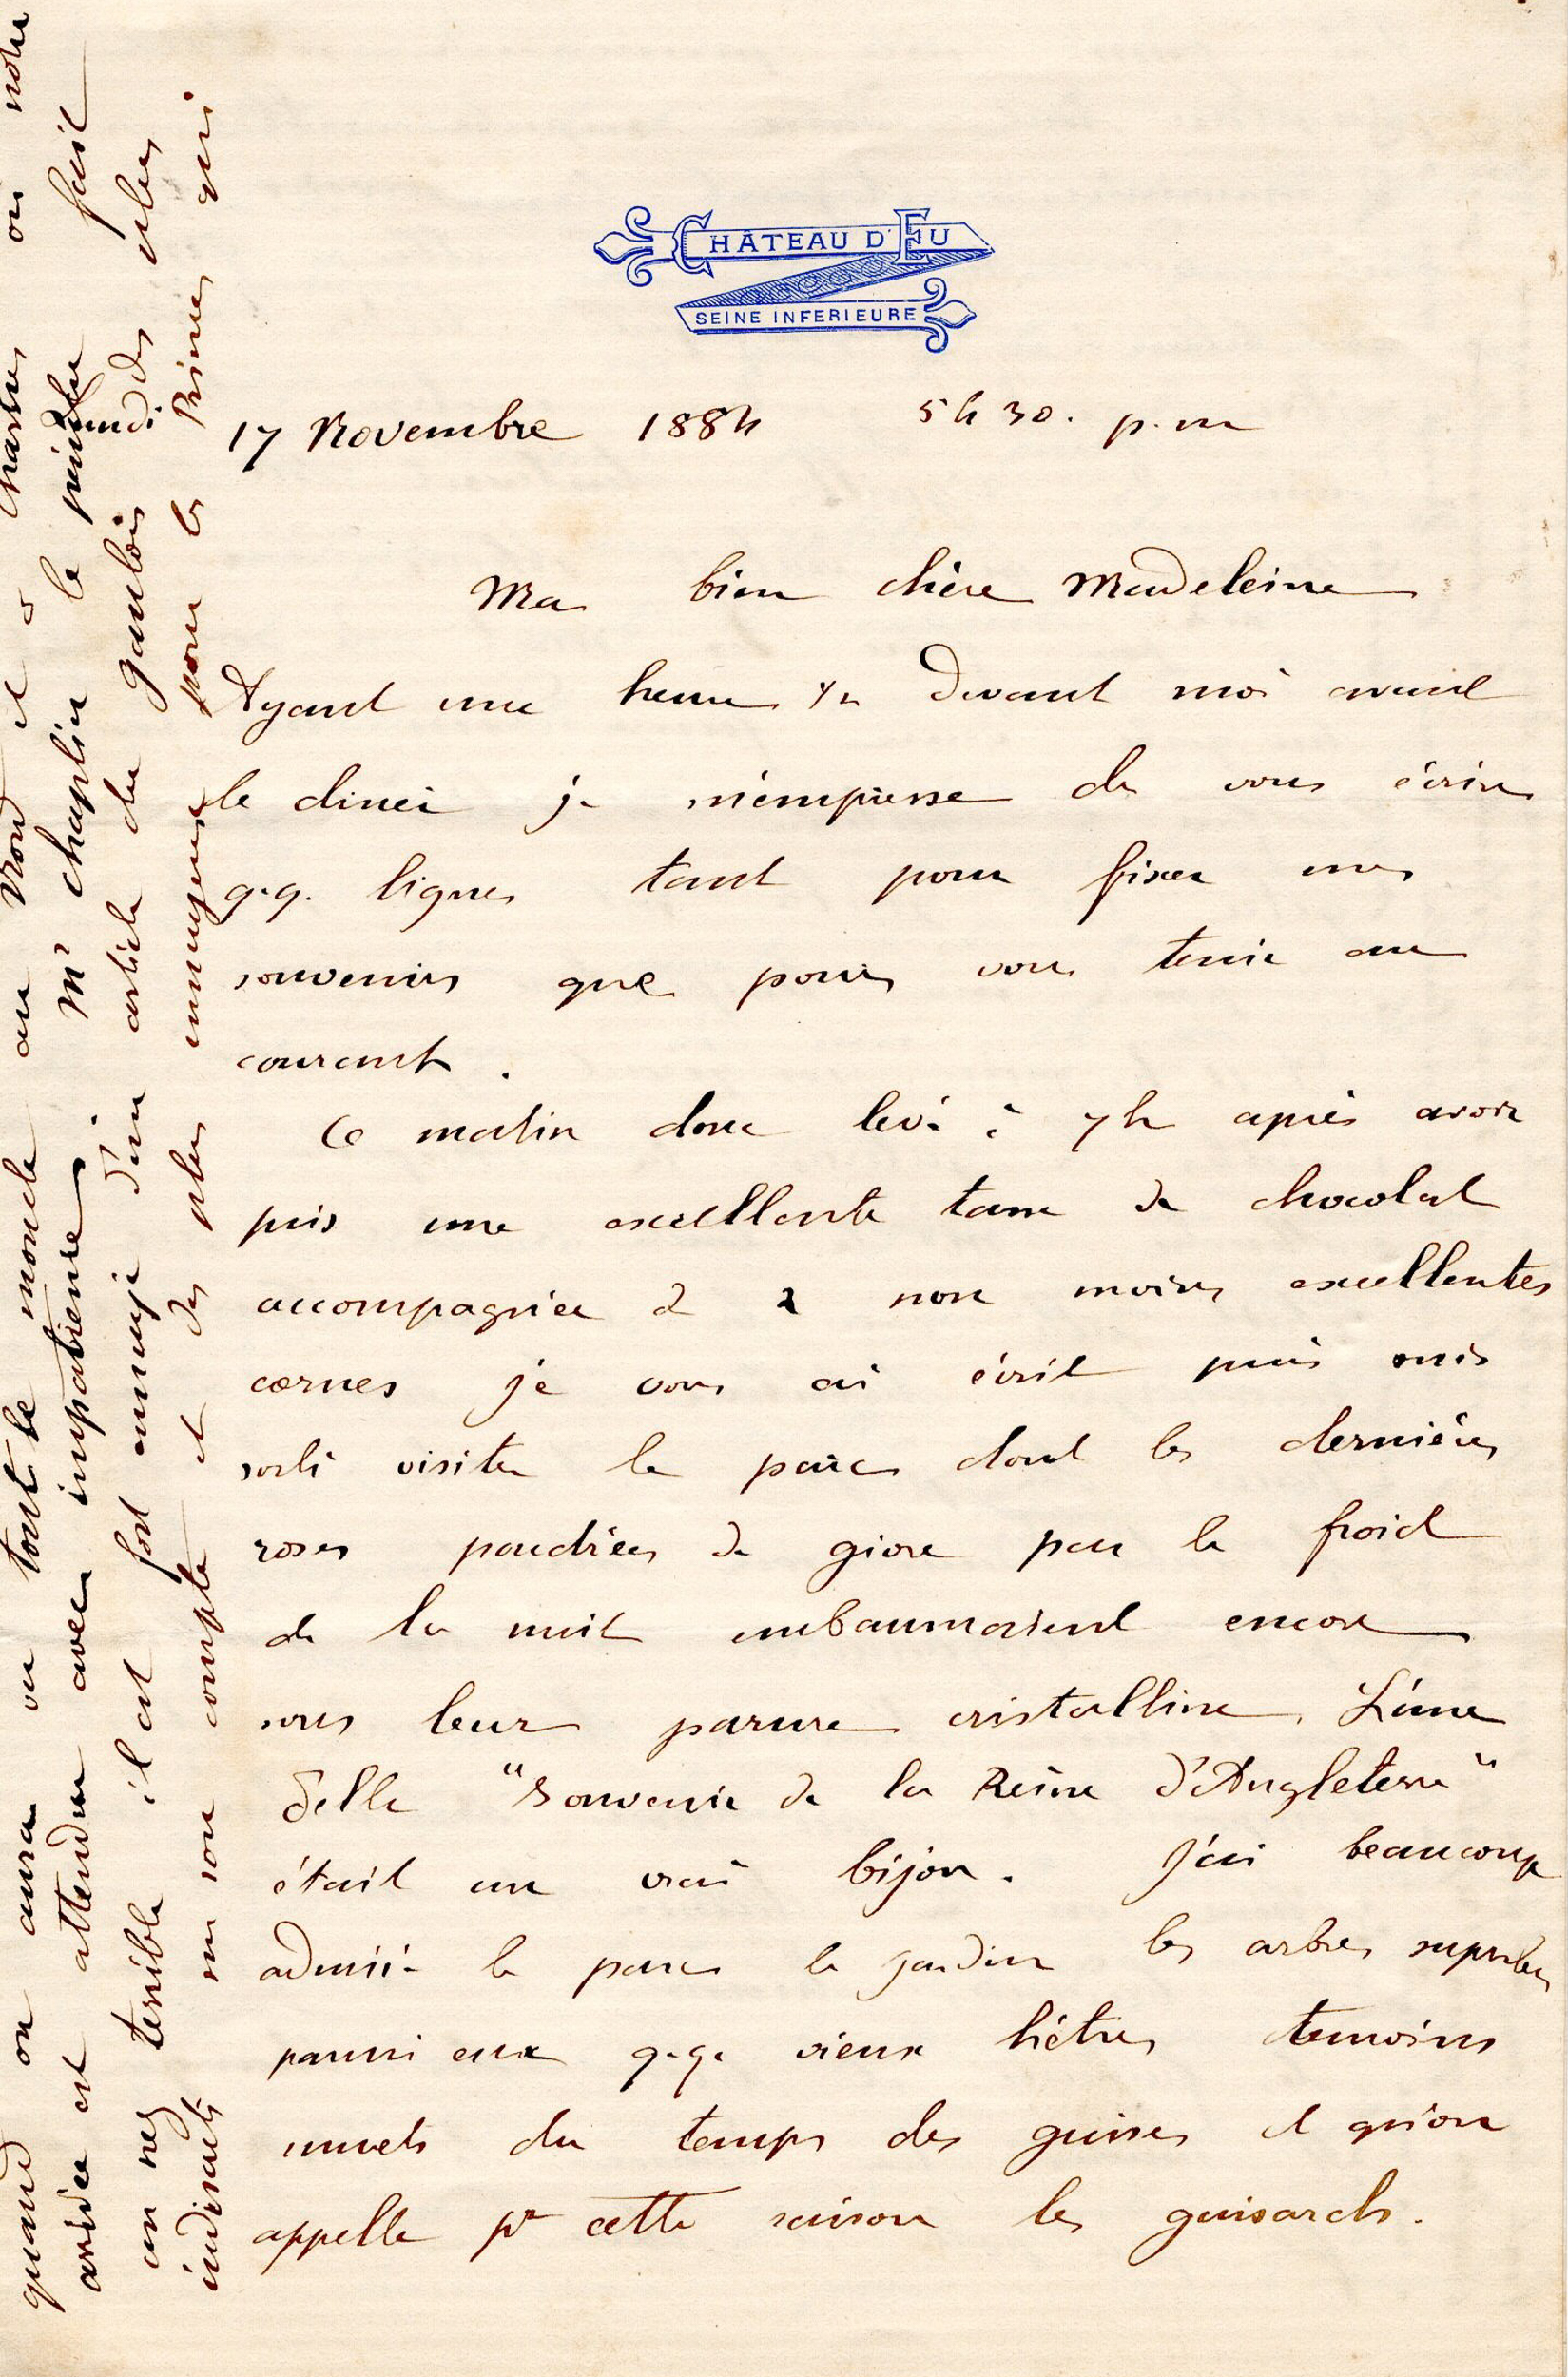 CHÂTEAU D'EU
SEINE INFERIEURE
Lundi 17 Novembre 1884 5h30. p.m
Ma bien chère Madeleine
Ayant une heure 1/2 devant moi avant
le diner je m'empresse de vous écrire
q.q. lignes tant pour fixer mes
souvenirs que pour vous tenir au
courant.
Ce matin donc levé à 7h après avoir
pris une excellente tasse de chocolat
accompagnée d 2 non moins excellentes
cornes je vous ai écrit puis suis
sorti visiter le parc dont les dernières
roses poudrées de givre par le froid
de la nuit embaumaient encore
sous leur parure cristalline, L'une
d'elle "Souvenir de la Reine d'Angleterre"
était un vrai bijou. J'ai beaucoup
admiré le parc le jardin les arbres superbes
parmi eux q.q. vieux hêtres temoins
muets du temps des guises et qu'on
appelle pr cette raison les guisards.
quand on aura vu tout le monde au rond et à chasses où notre
arrivée est attendue avec impatience, Mr Chaplin le peintre fait
un nez terrible il est fort ennuyé d'un article du gaulois des plus
indiscrets sur son compte et des plus ennuyeux pour les Princes qui